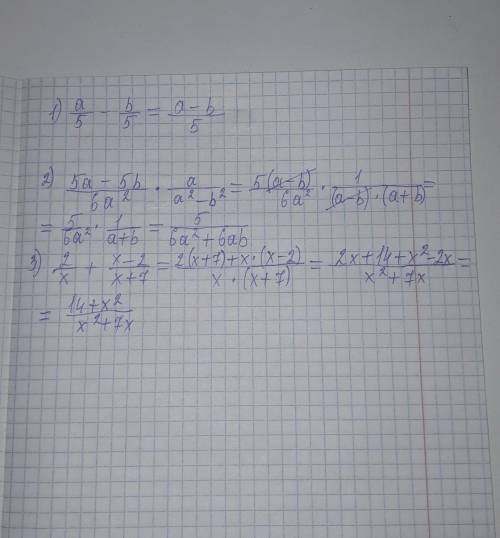 1) a/5 - b/5 = (a-b)/5
2) (5a-5b)/(6a²) · a/(a²-b²) = 5(a-b)/(6a²) · 1/((a-b)·(a+b)) =
= 5/(6a²) · 1/(a+b) = 5/(6a²+6ab)
3) 2/x + (x-2)/(x+7) = (2(x+7)+x·(x-2))/(x·(x+7)) = (2x+14+x²-2x)/(x²+7x) =
= (14+x²)/(x²+7x)